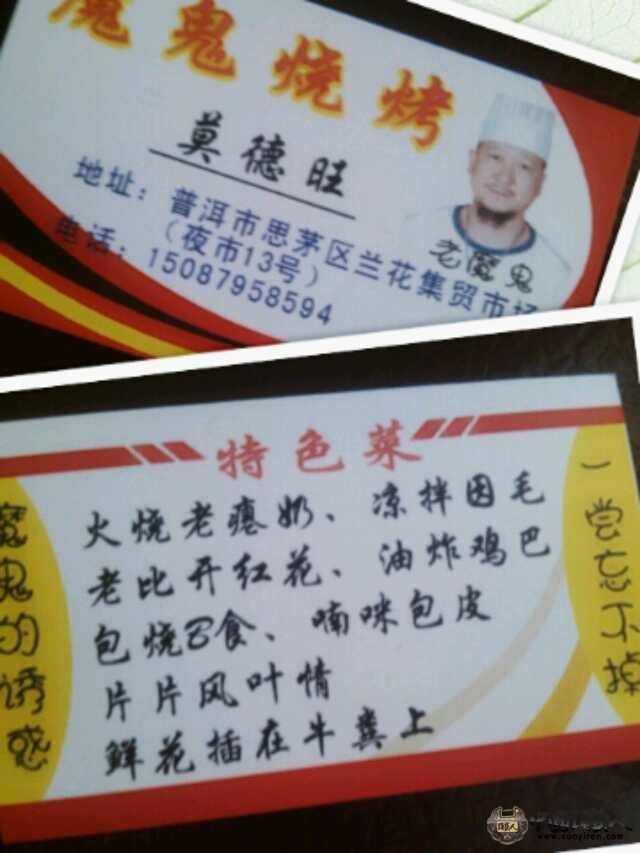 魔鬼烧烤
莫德旺
老魔鬼
地址：普洱市思茅区兰花集贸市场
（夜市13号）
电话：15087958594
特色菜
魔鬼的诱惑
火烧老瘪奶、凉拌因毛
老比开红花、油炸鸡巴
包烧B食、喃咪包皮
片片风叶情
鲜花插在牛粪上
一尝忘不掉
www.suoyiren.com